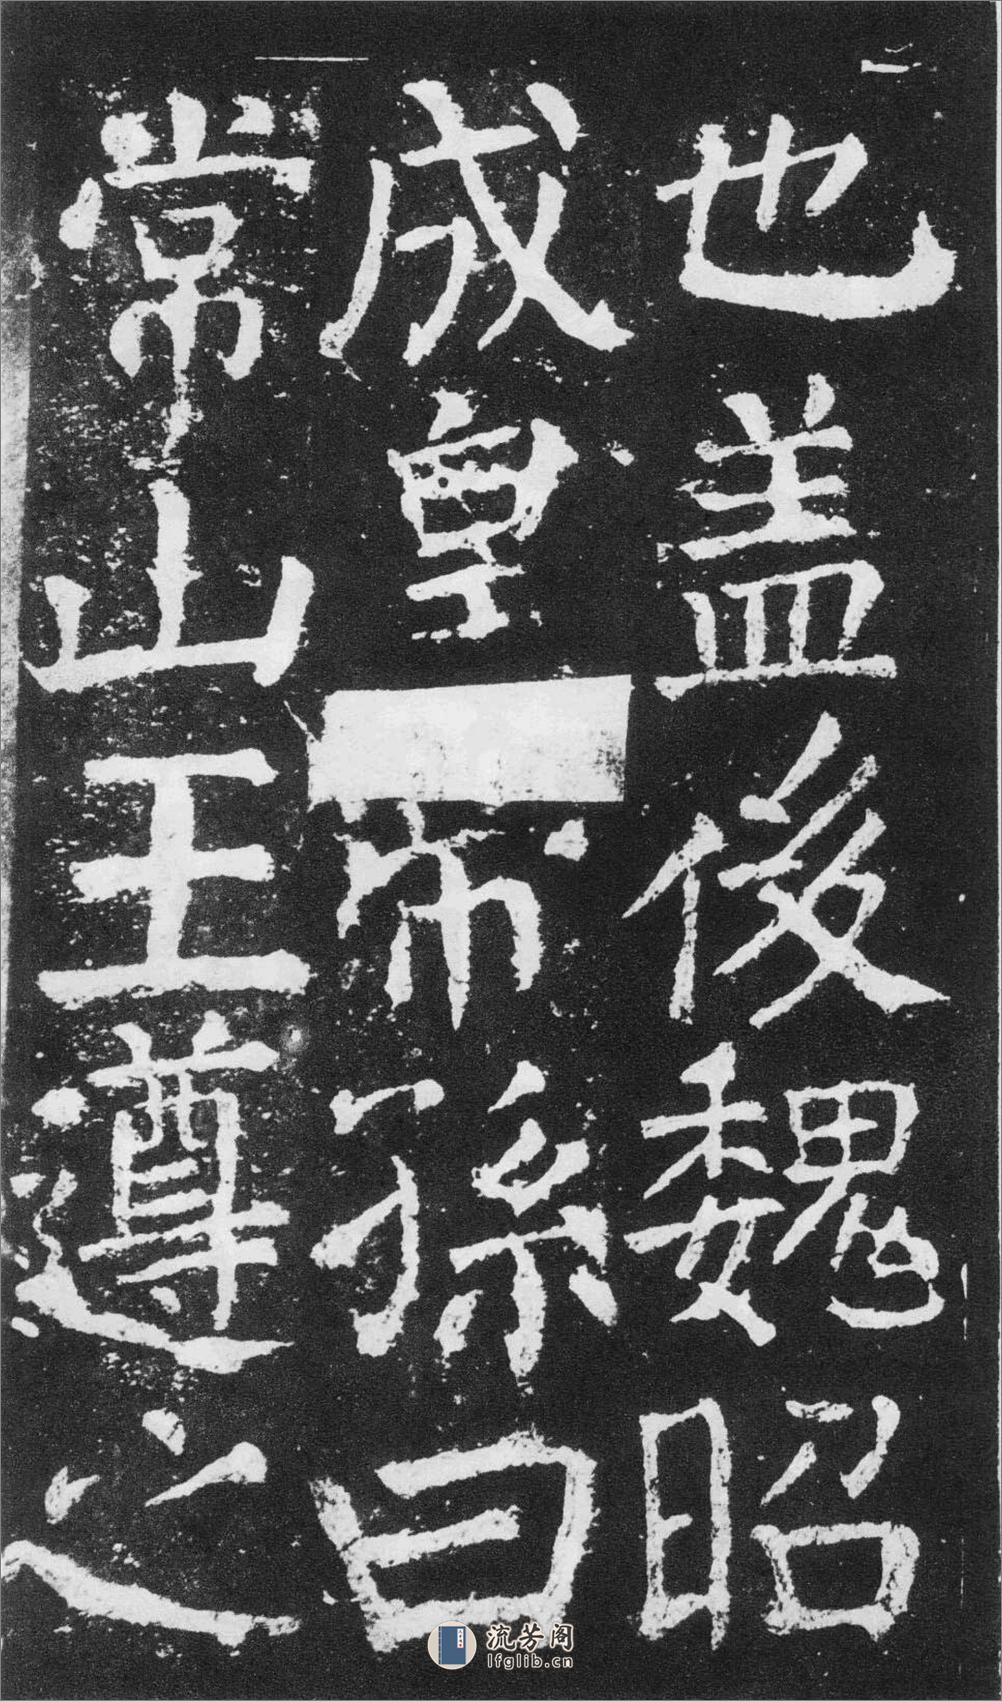 也盖後魏昭
成皇帝孫曰
常山王遵之
流芳阁
lfglib.cn